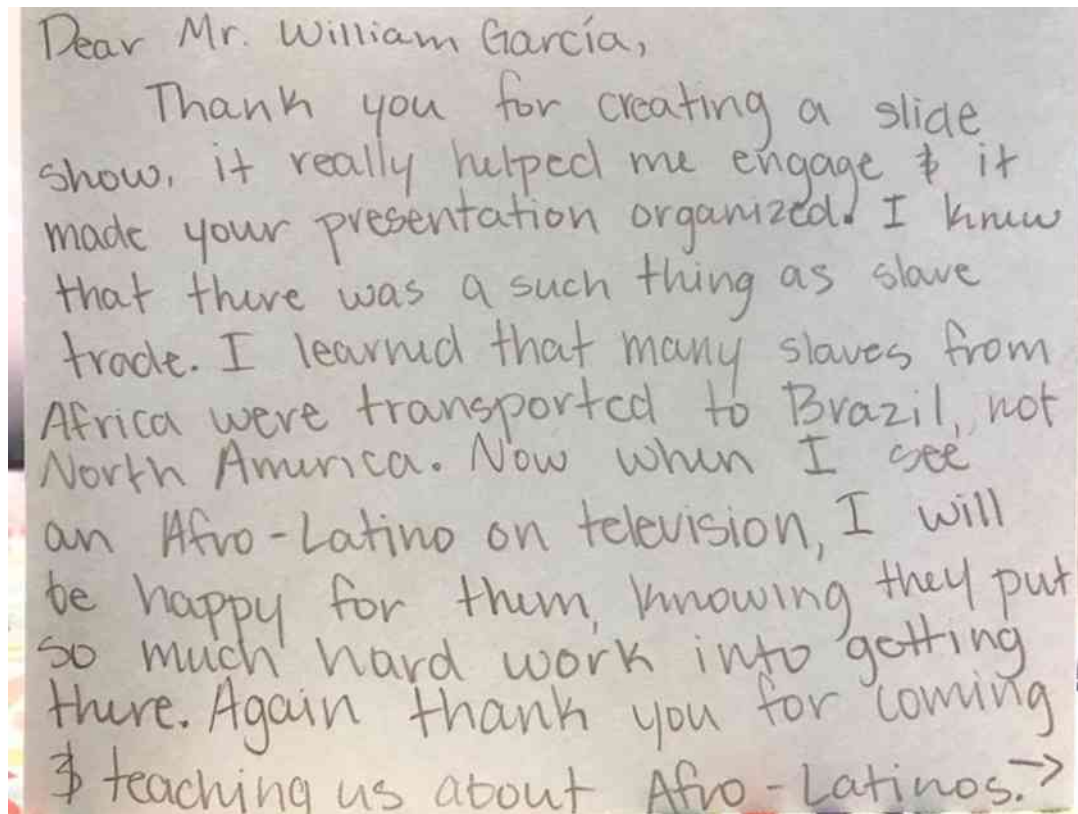 Dear Mr. William García,
Thank you for creating a slide
show, it really helped me engage & it
made your presentation organized. I knew
that there was a such thing as slave
trade. I learned that many slaves from
Africa were transported to Brazil, not
North America. Now when I see
an Afro-Latino on television, I will
be happy for them, knowing they put
so much hard work into getting
there. Again thank you for coming
& teaching us about Afro-Latinos. →